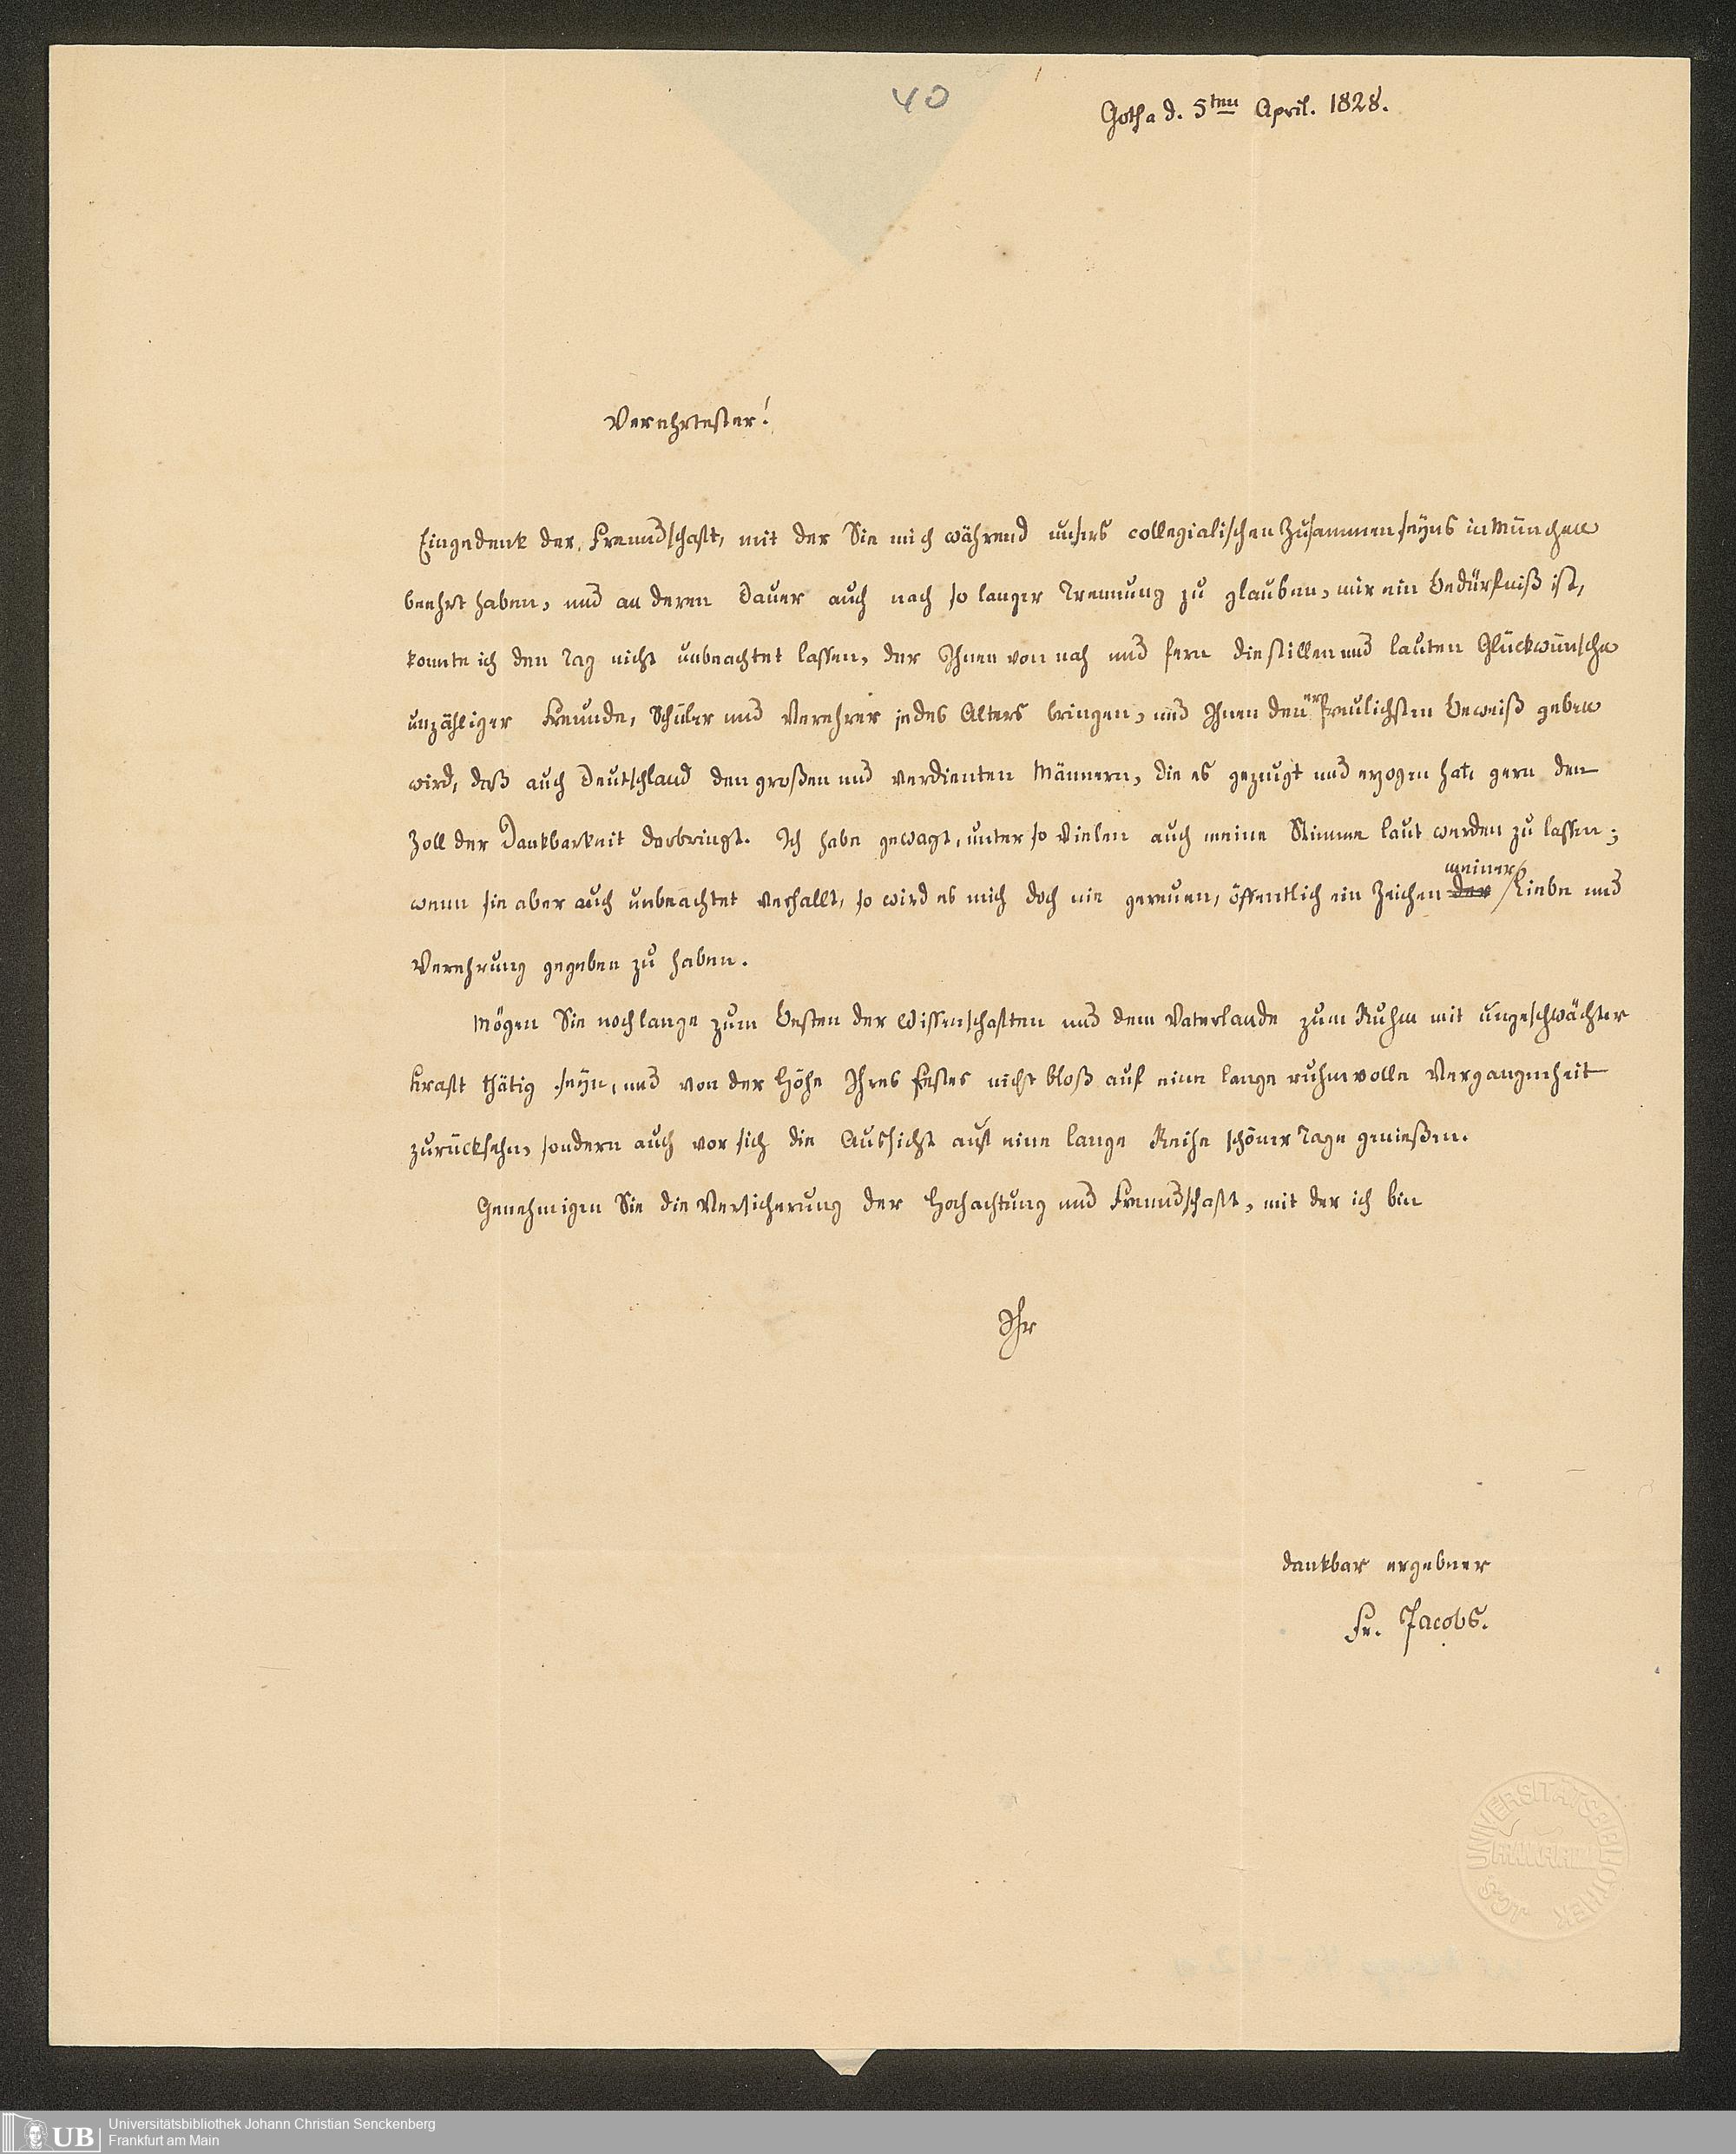 40
Gotha d. 5ten April. 1828.
Verehrtester!
Eingedenk der Freundschaft, mit der Sie mich während unsers collegialischen Zusammenseyns in München
beehrt haben, und an deren Dauer auch nach so langer Trennung zu glauben, mir ein Bedürfniß ist,
konnte ich den Tag nicht unbeachtet lassen, der Ihnen von nah und fern die stillen und lauten Glückwünsche
unzähliger Freunde, Schüler und Verehrer jedes Alters bringen, und Ihnen den erfreulichsten Beweiß geben
wird, daß auch Deutschland den großen und verdienten Männern, die es gezeugt und erzogen hat, gern den
Zoll der Dankbarkeit darbringt. Ich habe gewagt, unter so Vielen auch meine Stimme laut werden zu lassen;
wenn sie aber auch unbeachtet verhallt, so wird es mich doch nie gereuen, öffentlich ein Zeichen der meiner Liebe und
Verehrung gegeben zu haben.
Mögen Sie noch lange zum Besten der Wissenschaften und dem Vaterlande zum Ruhm mit ungeschwächter
Kraft thätig seyn, und von der Höhe Ihres Festes nicht bloß auf eine lange ruhmvolle Vergangenheit
zurücksehn, sondern auch vor sich die Aussicht auf eine lange Reihe schöner Tage genießen.
Genehmigen Sie die Versicherung der Hochachtung und Freundschaft, mit der ich bin
Ihr
dankbar ergebner
Fr. Jacobs.
UNIVERSITÄTSBIBLIOTHEK JCS
FRANKFURT
UB
Universitätsbibliothek Johann Christian Senckenberg
Frankfurt am Main